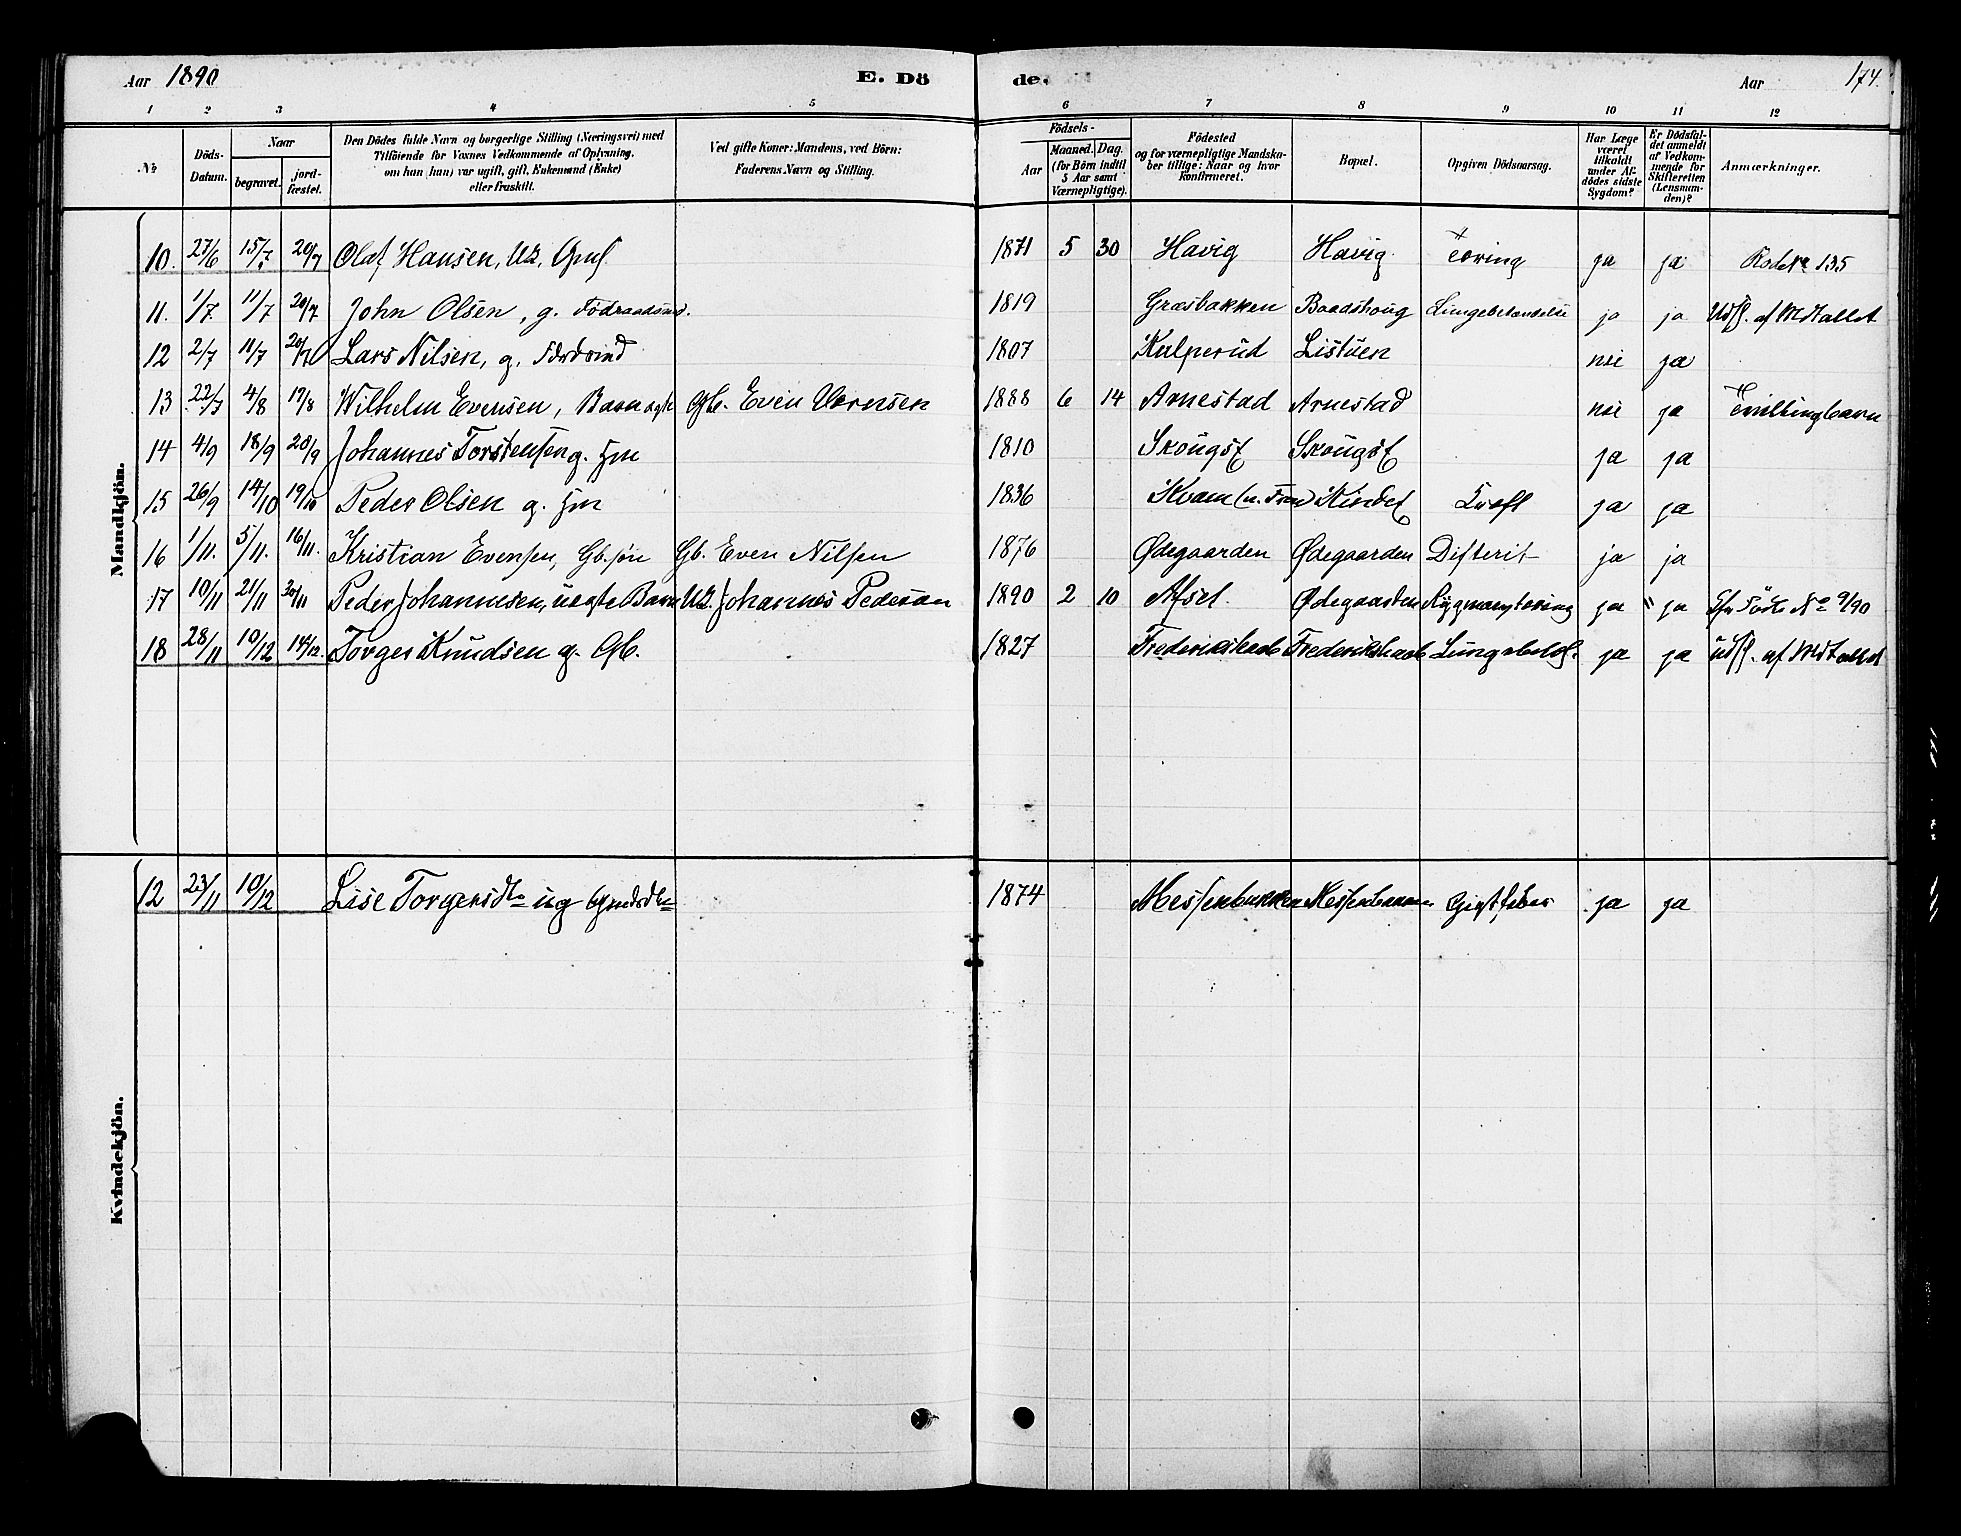 Aar 1890 E. Dö de. Aar 174.
1 2 3 4 5 6 7 8 9 10 11 12
No
Döds-Datum.
Naar begravet. jordfæstet.
Den Dödes fulde Navn og borgerlige Stilling (Næringsvei) med Tilföiende for Voxnes Vedkommende af Oplysning, om han (hun) var ugift, gift, Enkemand (Enke) eller fraskilt.
Ved gifte Koner: Mandens, ved Börn: Faderens Navn og Stilling.
Födsels-
Aar Maaned. Dag. (for Börn indtil 5 Aar samt Værnepligtige).
Födested og for værnepligtige Mandskaber tillige: Naar og hvor Konfirmeret.
Bopæl.
Opgiven Dödsaarsag.
Har Læge været tilkaldt under Afdödes sidste Sygdom?
Er Dödsfaldet anmeldt af Vedkommende for Skifteretten (Lensmanden)?
Anmærkninger.
Mandkjön.
10. 27/6 15/7 20/7 Olaf Hansen, 1871 5 30 Havig Havig Tæring ja ja 135
11. 1/7. 11/7 20/7 John Olsen, g. Föderaadsmd. 1819 Græsbakken Baadshoug Lungebetændelse ja ja Udfl. af Mdtallet
12 2/7 11/7 20/7 Lars Nilsen, g. 1807 Kulperud Listuen nei ja
13 22/7 4/8 17/8 Wilhelm Evensen, Barn ægte Gb. Even 1888 6 14 Arnestad Arnestad nei ja Tvillingbarn
14 4/9 18/9 20/9 Johannes Torstensen g. 1810 ja ja
15 26/9 14/10 19/10 Peder Olsen g. 1836 Kvam ja ja
16 1/11. 5/11. 16/11. Kristian Evensen, Gb.søn Gb. Even Nilsen 1876 Ødegaarden Ødegaarden Difterit ja ja
17 10/11 21/11 30/11 Peder Johannesen, uægte Barn Johannes Pedersen 1890 2 10 Afsel. Ødegaarden Rygmarvtæring ja ja No 9/90
18 28/11 10/12 14/12. Torger Knudsen g. Gb. 1827 Frederikshaab Frederikshaab ja ja udfl. af Mdtallet
Kvindekjön.
12 23/11 10/12 Lise Torgersdtr ug 1874 Messenbakken Messenbakken Gigtfeber ja ja